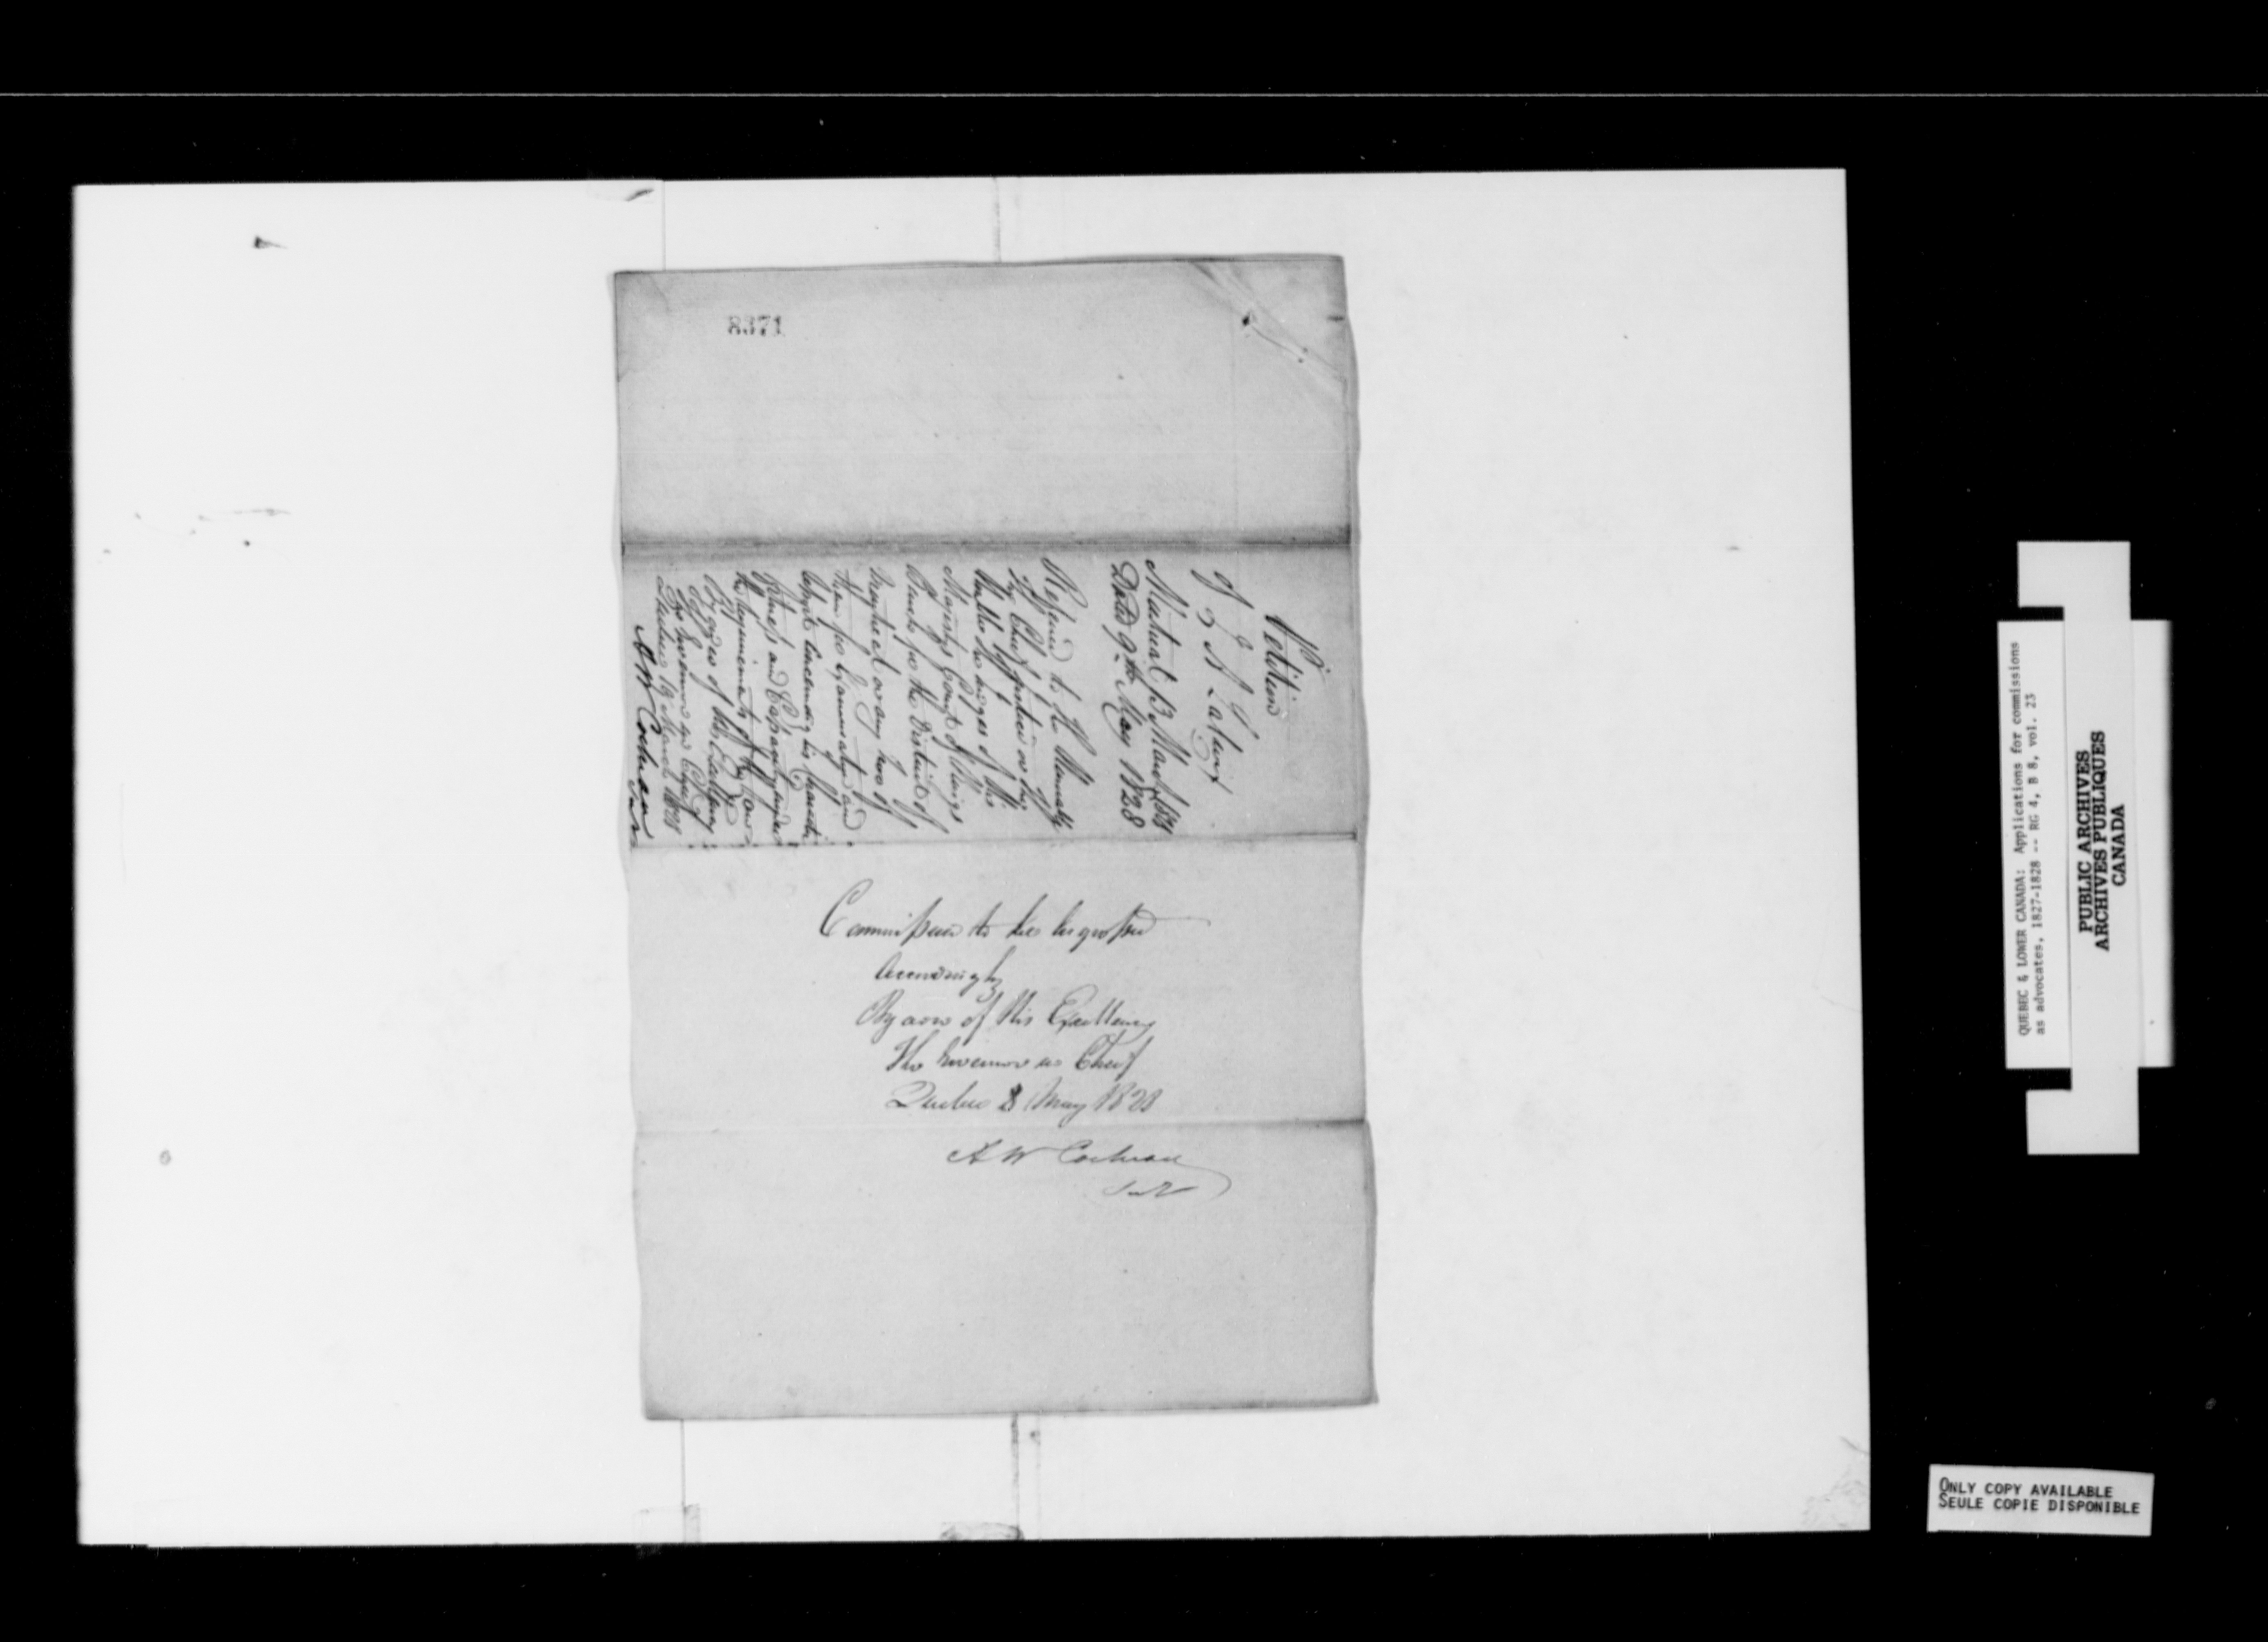 8371
Petition
of
Montreal 13 March 1828
Dated 9th May 1828
Referred to the Honorable
the Chief Justice or the
Judges of His
Majesty's Court of King's
Bench for the District of
Montreal or any two of
them for Examination and
Report concerning his Character
Fitness and Capacity
the requirements of the Law
By order of His Excellency
The Governor in Chief
Quebec 19 March 1828
A W Cochran
Secy
Commission to be Engrossed
Accordingly
By order of His Excellency
The Governor in Chief
Quebec 8 May 1828
A W Cochran
Secy
QUEBEC & LOWER CANADA: Applications for commissions
as advocates, 1827-1828 -- RG 4, B 8, vol. 23
PUBLIC ARCHIVES
ARCHIVES PUBLIQUES
CANADA
ONLY COPY AVAILABLE
SEULE COPIE DISPONIBLE